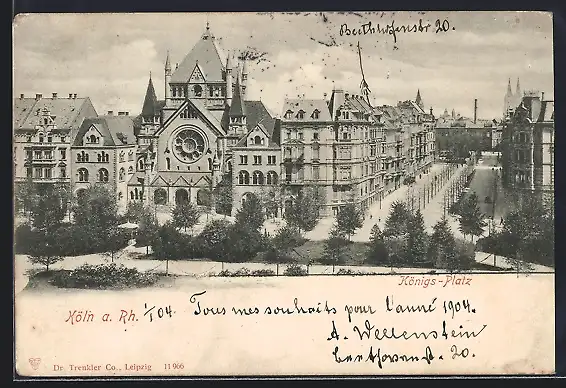 Beethofenstr. 20.
Königs-Platz
Köln a. Rh. 1/1 04 Tous mes souhaits pour l'année 1904.
A. Wellenstein
Beethovenstr. 20.
Dr. Trenkler Co., Leipzig 11966